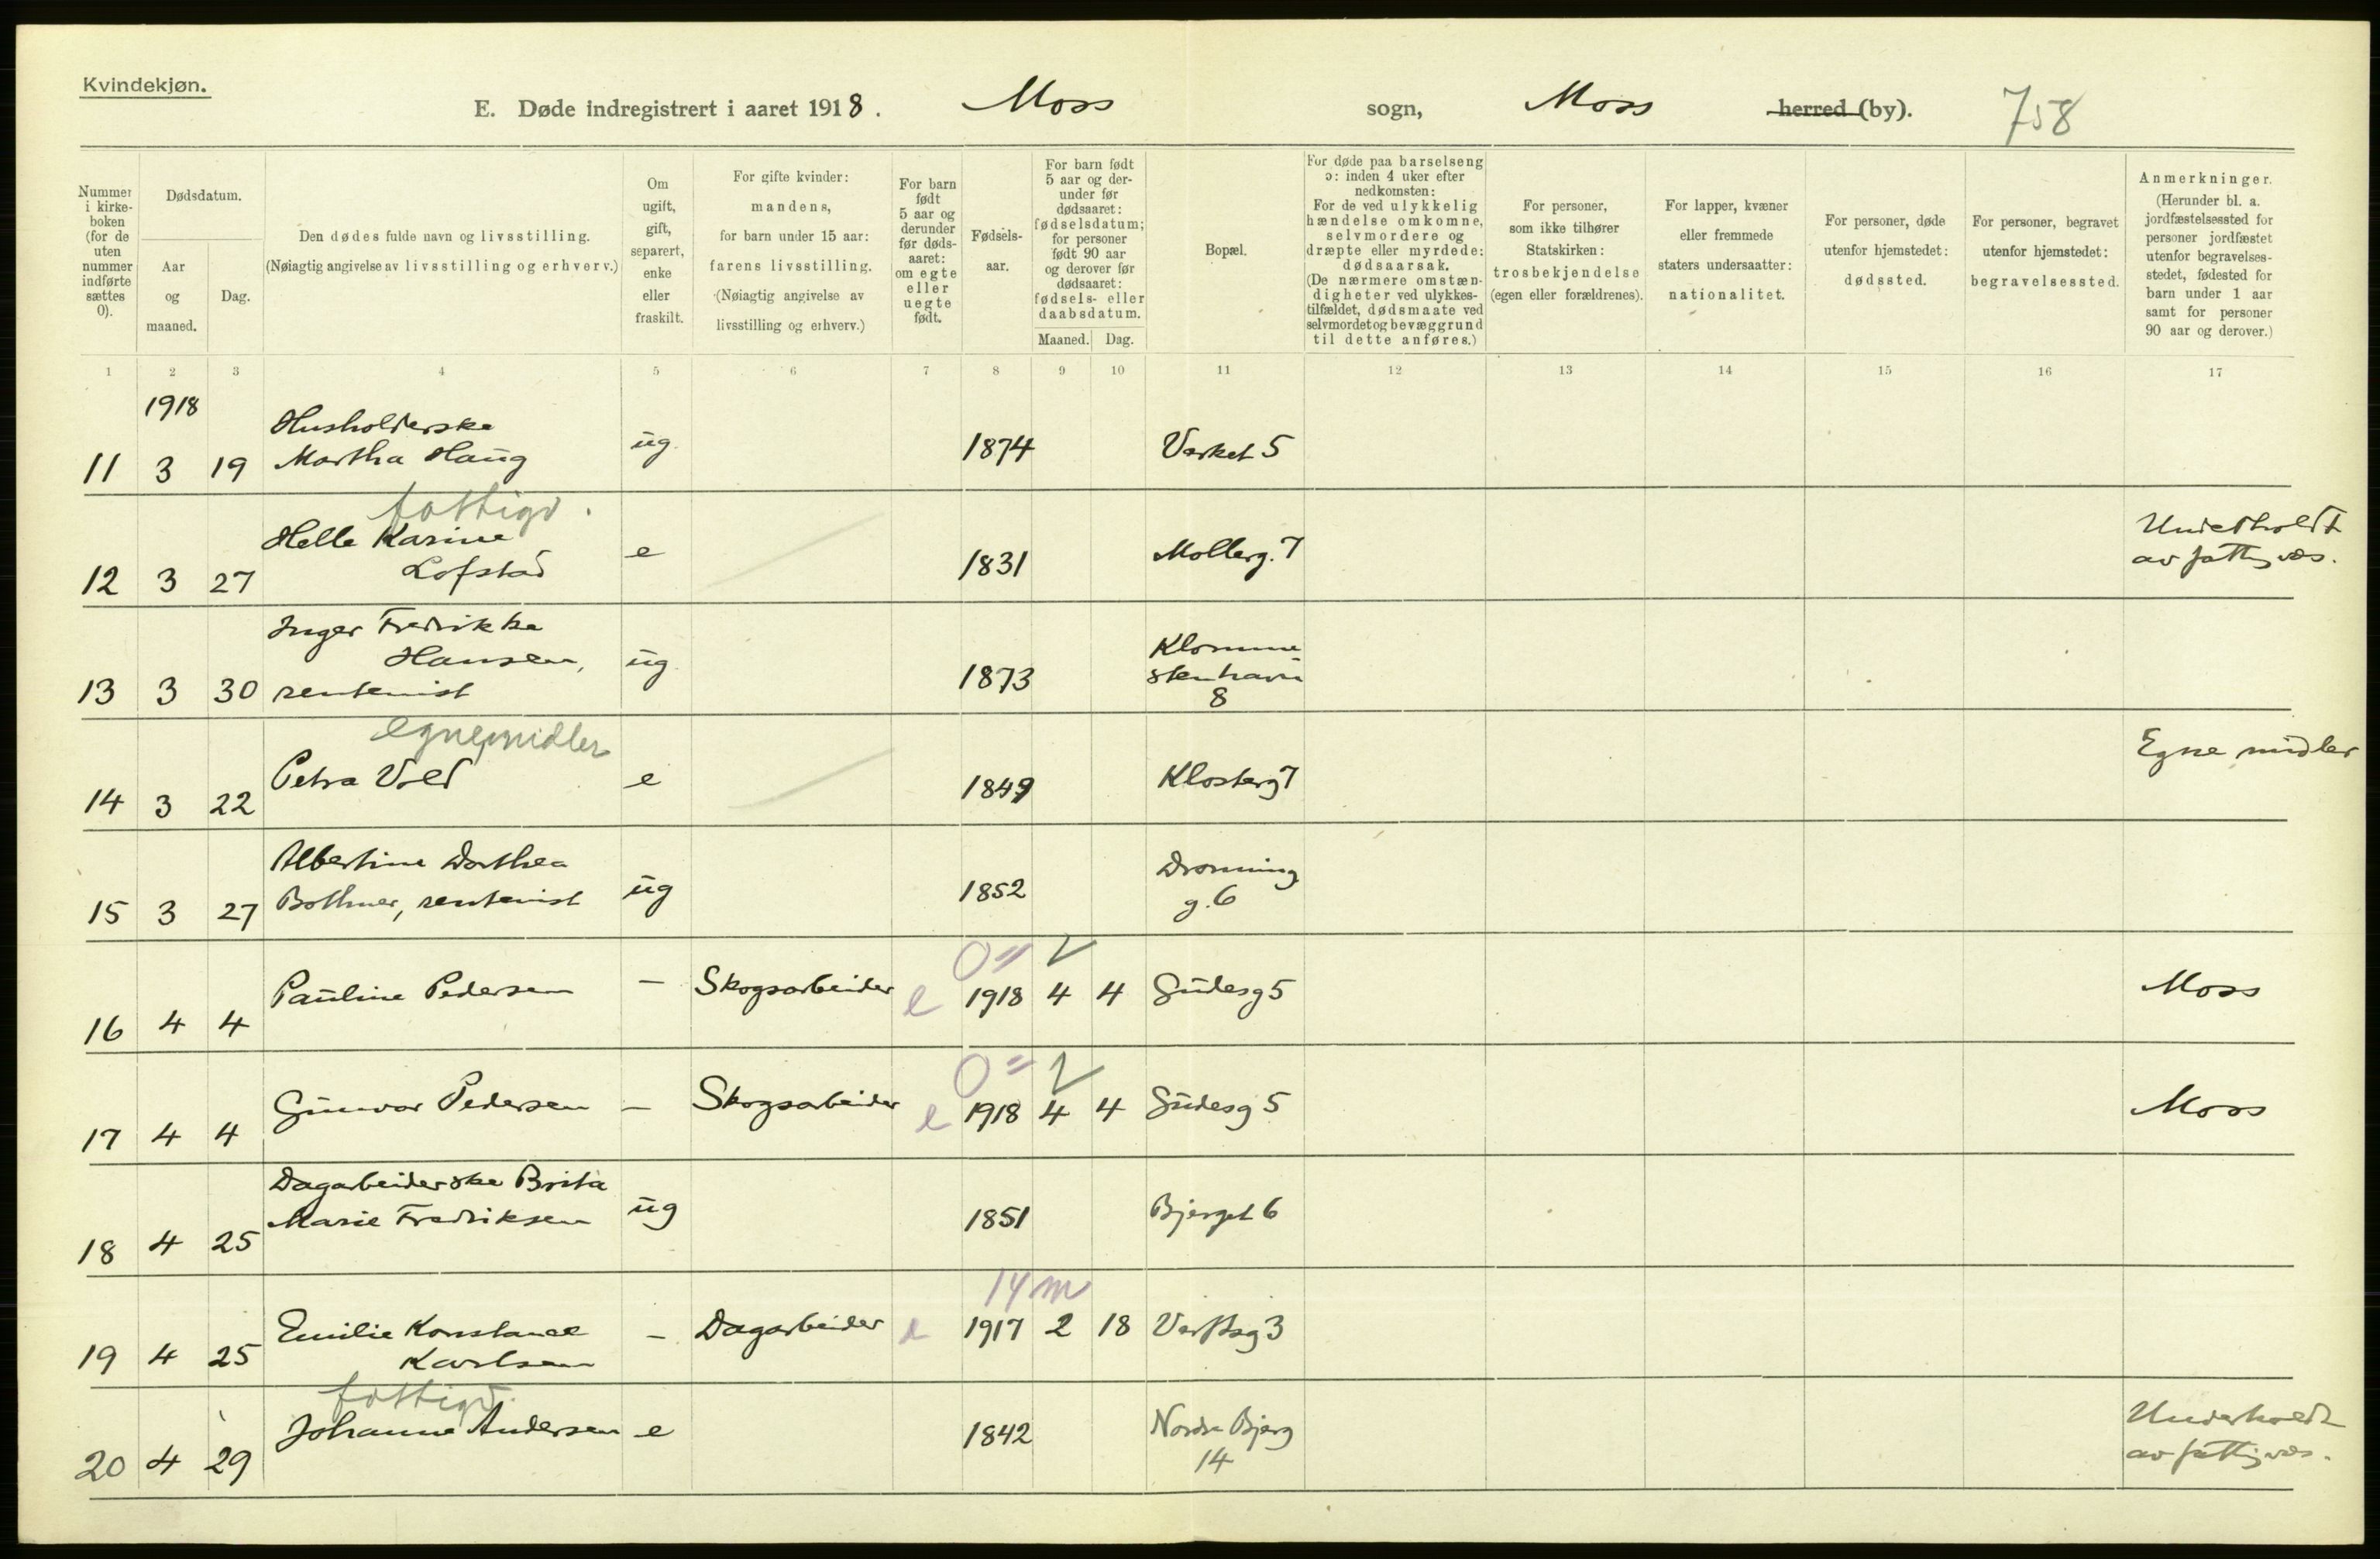 Kvindekjøn.
E. Døde indregistrert i aaret 1918. Moss sogn, Moss herred (by). 758
Nummer i kirke-boken (for de uten nummer indførte sættes 0).
Dødsdatum.
Aar og maaned.
Dag.
Den dødes fulde navn og livsstilling.
(Nøiagtig angivelse av livsstilling og erhverv.)
Om ugift, gift, separert, enke eller fraskilt.
For gifte kvinder: mandens, for barn under 15 aar: farens livsstilling. (Nøiagtig angivelse av livsstilling og erhverv.)
For barn født 5 aar og derunder før døds-aaret: om egte eller uegte født.
Fødsels-aar.
For barn født 5 aar og der-under før dødsaaret: fødselsdatum; for personer født 90 aar og derover før dødsaaret: fødsels- eller daabsdatum.
Maaned. Dag.
Bopæl.
For døde paa barselseng ɔ: inden 4 uker efter nedkomsten: For de ved ulykkelig hændelse omkomne, selvmordere og dræpte eller myrdede: dødsaarsak. (De nærmere omstæn-digheter ved ulykkes-tilfældet, dødsmaate ved selvmordet og bevæggrund til dette anføres.)
For personer, som ikke tilhører Statskirken: trosbekjendelse (egen eller forældrenes).
For lapper, kvæner eller fremmede staters undersaatter: nationalitet.
For personer, døde utenfor hjemstedet: dødssted.
For personer, begravet utenfor hjemstedet: begravelsessted.
Anmerkninger. (Herunder bl. a. jordfæstelsessted for personer jordfæstet utenfor begravelses-stedet, fødested for barn under 1 aar samt for personer 90 aar og derover.)
1 2 3 4 5 6 7 8 9 10 11 12 13 14 15 16 17
1918
Husholderske
11 3 19 Martha Haug ug. 1874 Værket 5
fattigv.
Helle Karine Underholdt
12 3 27 Lofstad e 1831 Mollerg. 7 av fattigvæs.
Inger Fredrikke
Hansen, ug. Klomme
13 3 30 rentenist 1873 stenhavn
8
egne midler
14 3 22 Petra Vold e 1849 Klosterg 7 Egne midler
Albertine Dorthea Dronning
15 3 27 Bothner, rentenist ug 1852 g. 6
0 =
16 4 4 Pauline Pedersen — Skogsarbeider e 1918 4 4 Gudesg 5 Moss
0 =
17 4 4 Gunvor Pedersen — Skogsarbeider e 1918 4 4 Gudesg 5 Moss
Dagarbeiderske Brita
18 4 25 Marie Fredriksen ug 1851 Bjerget 6
14 m
19 4 25 Emilie Konstance — Dagarbeider e 1917 2 18 Værftsg 3
Karlsen
fattigv.
20 4 29 Johanne Andersen e 1842 Nordre Bjerg Underholdt
14 av fattigvæs.